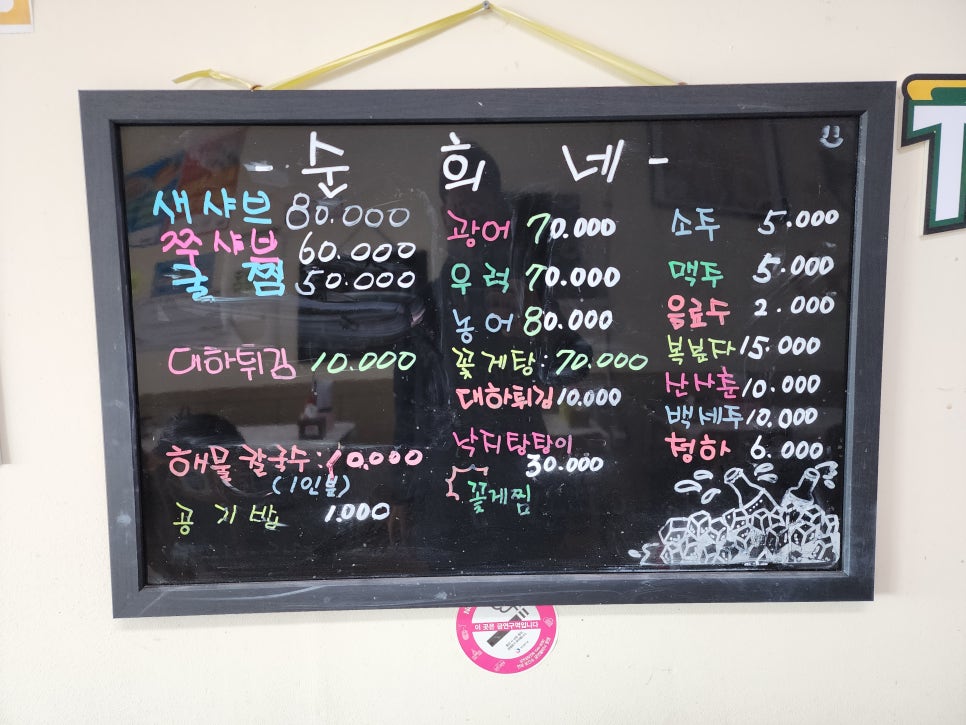 - 순 희 네 -
새샤브 80.000
쭉샤브 60.000
굴찜 50.000
대하튀김 10.000
해물칼국수: 10.000
(1인분)
공기밥 1.000
광어 70.000
우럭 70.000
농어 80.000
꽃게탕: 70.000
대하튀김 10.000
낙지탕탕이
30.000
꽃게찜
소주 5.000
맥주 5.000
음료수 2.000
복분자 15.000
산사춘 10.000
백세주 10.000
청하 6.000
이 곳은 금연구역입니다